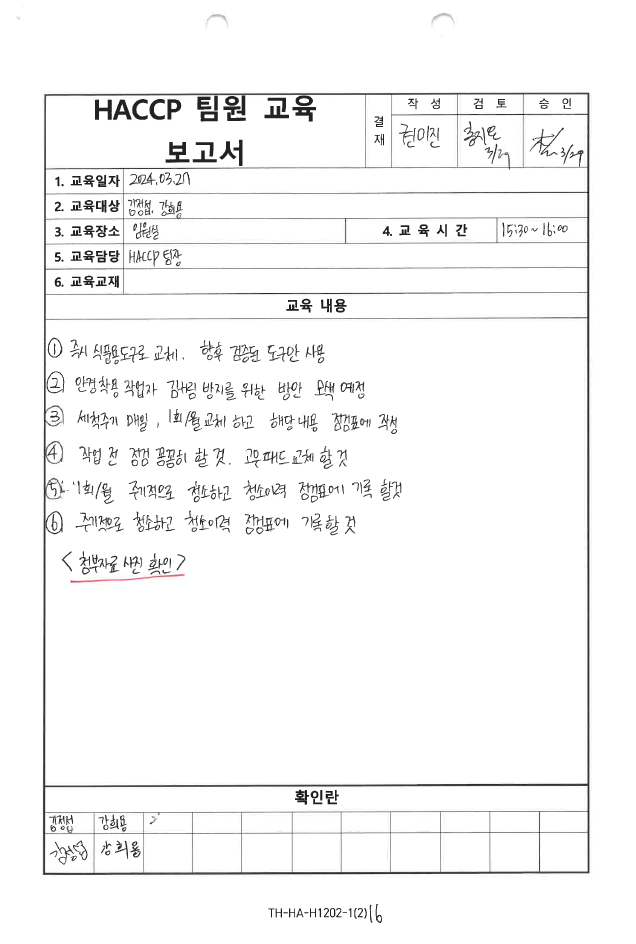 HACCP 팀원 교육
보고서
결재
작 성
검 토
승 인
권미진
3/29
3/29
1. 교육일자
2024.03.27
2. 교육대상
김정섭, 강희용
3. 교육장소
임원실
4. 교 육 시 간
15:30 ~ 16:00
5. 교육담당
HACCP 팀장
6. 교육교재
교육 내용
① 즉시 식품용도구로 교체. 향후 검증된 도구만 사용
② 안경착용 작업자 김서림 방지를 위한 방안 모색 예정
③ 세척주기 매일, 1회/월 교체 하고 해당내용 점검표에 작성
④ 작업 전 점검 꼼꼼히 할 것. 고무패드 교체 할 것
⑤ 1회/월 주기적으로 청소하고 청소이력 점검표에 기록 할것
⑥ 주기적으로 청소하고 청소이력 점검표에 기록 할 것
< 첨부자료 사진 확인 >
확인란
김정섭
강희용
김정섭
강희용
TH-HA-H1202-1(2) 16